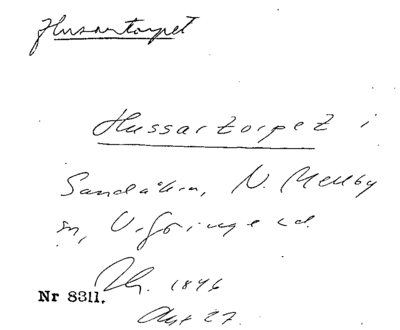 Hussartorpet
Hussartorpet i
Sandåkra, N. Mellby
sn, V. Göinge hd.
Nr 8311.
1846
27.